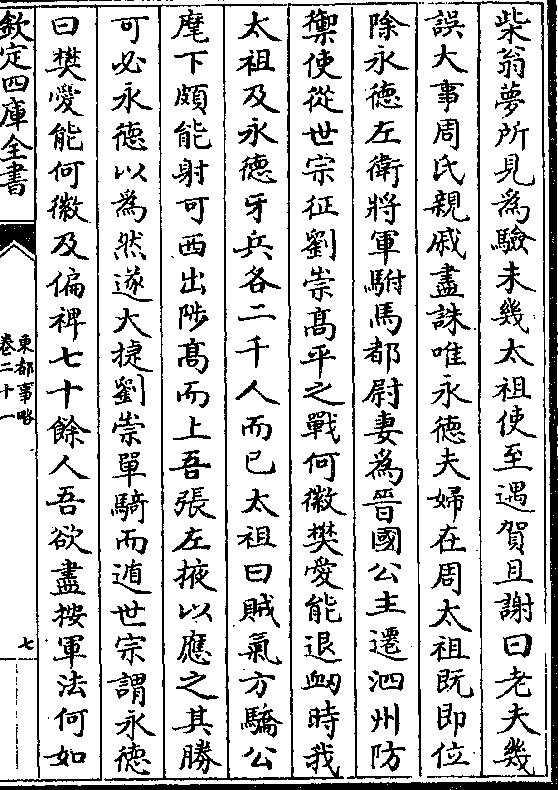 柴翁夢所見為驗未幾太祖使至遇賀且謝曰老夫幾
誤大事周氏親戚盡誅唯永德夫婦在周太祖既即位
除永德左衛將軍駙馬都尉妻為晉國公主遷泗州防
禦使從世宗征劉崇髙平之戰何徽樊愛能退衂時我
太祖及永德牙兵各二千人而已太祖曰賊氣方驕公
麾下頗能射可西出陟髙而上吾張左掖以應之其勝
可必永德以為然遂大捷劉崇單騎而遁世宗謂永德
曰樊愛能何徽及偏裨七十餘人吾欲盡按軍法何如
欽定四庫全書
東都事略
卷二十一
七